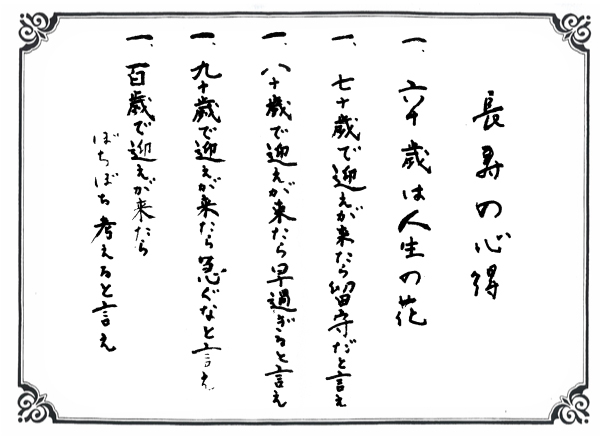 長寿の心得
一、六十歳は人生の花
一、七十歳で迎えが来たら留守だと言え
一、八十歳で迎えが来たら早過ぎると言え
一、九十歳で迎えが来たら急ぐなと言え
一、百歳で迎えが来たら
ぼちぼち考えると言え